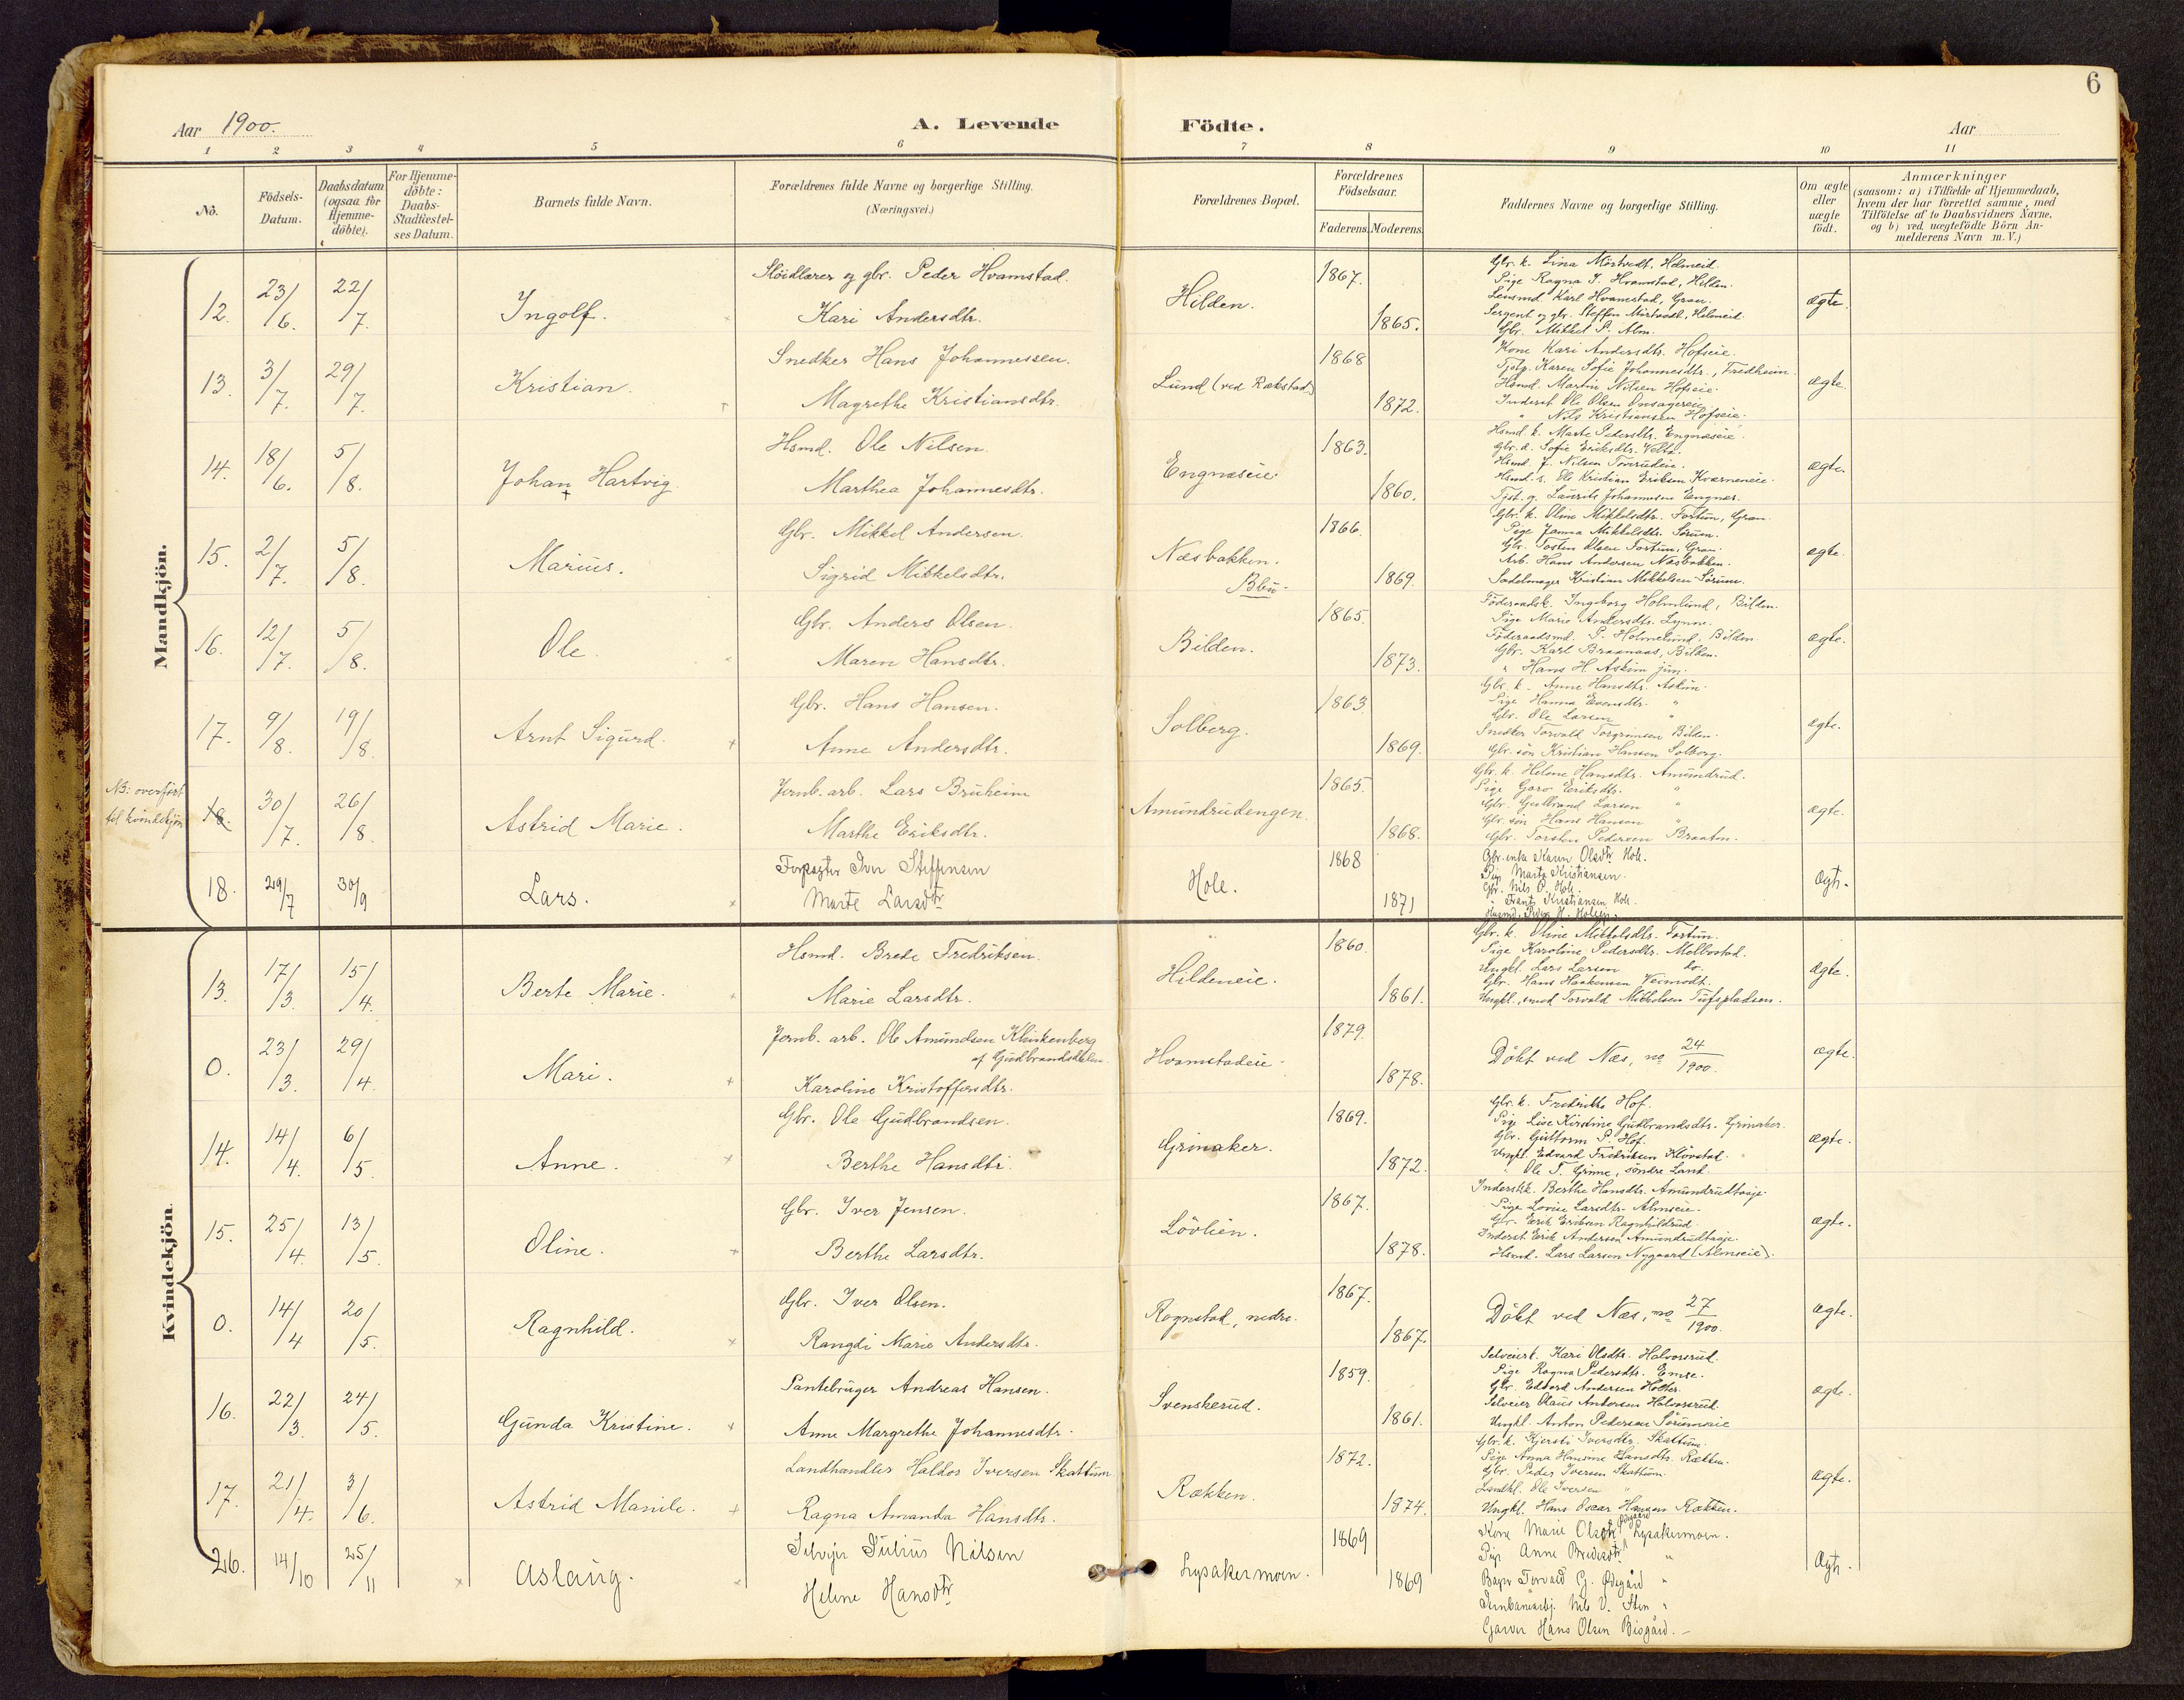 6
Aar 1900.
A. Levende Födte.
Aar
1 2 3 4 5 6 7 8 9 10 11
No.
Födsels-Datum.
Daabsdatum (ogsaa for Hjemmedöbte).
For Hjemmedöbte: Daabs-Stadfæstelses Datum.
Barnets fulde Navn.
Forældrenes fulde Navne og borgerlige Stilling. (Næringsvei.)
Forældrenes Bopæl.
Forældrenes Födselsaar.
Faderens. Moderens.
Faddernes Navne og borgerlige Stilling.
Om ægte eller uægte födt.
Anmærkninger
(saasom: a) i Tilfælde af Hjemmedaab,
hvem der har forrettet samme, med
Tilföielse af to Daabsvidners Navne,
og b) ved uægtefödte Börn An-
melderens Navn m.V.)
Mandkjön.
12. 23/6. 22/7. Ingolf.
Slöidlærer og gbr. Peder Hvamstad.
Kari Andersdtr.
Hilden. 1867. 1865.
Gbr. k. Lina Mörtvedt, Helmeid.
Pige Ragna J. Hvamstad, Hilden.
Lensmd Karl Hvamstad, Gran.
Sergent og gbr. Steffen Mörtvedt, Helmeid.
Gbr. Mikkel P. Alm.
ægte.
13. 3/7. 29/7. Kristian.
Snedker Hans Johannessen.
Magrethe Kristiansdtr.
Lund (ved Rækstad) 1868 1872.
Kone Kari Andersdtr. Hofseie.
Tjstp. Karen Sofie Johannesdtr., Fredheim.
Hsmd. Martin Nilsen Hofseie.
Inderst Ole Olsen Onsagereie
" Nils Kristiansen Hofseie.
ægte.
14. 18/6. 5/8. Johan Hartvig.
Hsmd. Ole Nilsen.
Marthea Johannesdtr.
Engnæseie 1863. 1860.
Hsmd. k. Marte Pedersdtr. Engnæseie.
Gbr. d. Sofie Eriksdtr. Velta.
Hsmd. J. Nilsen
Hsmd. s. Ole Kristian Eriksen Kværneneie.
Tjst. g. Laurits Johannesen Engnæs.
ægte.
15. 2/7. 5/8. Marius.
Gbr. Mikkel Andersen.
Sigrid Mikkelsdtr.
Næsbakken. 1866. 1869.
Gbr. k. Oline Mikkelsdtr. Fortun, Gran.
Pige Janna Mikkelsdtr. Sörum.
Gbr. Tosten Olsen Fortun, Gran.
Arb. Hans Andersen Næsbakken.
Sadelmager Kristian Mikkelsen Sörum.
ægte.
16. 12/7. 5/8. Ole.
Gbr. Anders Olsen.
Maren Hansdtr.
Bilden. 1865. 1873.
Föderaadsk. Ingeborg Holmlund, Bilden.
Pige Marie Andersdtr. Lynne.
Föderaadsmd. P. Holmlund, Bilden
Gbr. Karl Braanaas, Bilden.
" Hans H. Askim jun.
ægte.
17. 9/8. 19/8. Arnt Sigurd.
Gbr. Hans Hansen.
Anne Andersdtr.
Solberg. 1863 1869.
Gbr. k. Anne Hansdtr. Askim.
Pige Hanna Evensdtr. "
Gbr. Ole Larsen "
Snedker Torvald Torgrimsen Bilden.
Gbr. sön Kristian Hansen Solberg.
ægte.
NB: overfört til kvindekjön
18. 30/7. 26/8. Astrid Marie.
Jernb. arb. Lars Bruheim
Marthe Eriksdtr.
Amundrudengen. 1865. 1868.
Gbr. k. Helene Hansdtr. Amundrud.
Pige Goro Eriksdtr. "
Gbr. Gulbrand Larsen "
Gbr. sön Hans Hansen "
Gbr. Torsten Pedersen Braaten.
ægte.
18. 29/7 30/9 Lars.
Forpagter Iver Steffensen
Marte Larsdtr
Hole. 1868 1871
Gbr. enke Karen Olsdtr Hole.
Pige Marte Kristiansen.
Gbr. Nils P. Hole.
" Frantz Kristiansen Hole.
Husmd. Peder H.
Ægte.
Kvindekjön.
13. 17/3. 15/4. Berte Marie.
Hsmd. Brede Fredriksen.
Marie Larsdtr.
Hildeneie. 1860. 1861.
Gbr. k. Oline Mikkelsdtr. Fortun.
Pige Karoline Pedersdtr. Melbostad.
Ungkl. Lars Larsen do.
Gbr. Hans Haakensen Vermodt.
Ungkl., smed Torvald Mikkelsen Tufspladsen.
ægte.
0. 23/3. 29/4. Mari.
Jernb. arb. Ole Amundsen Klinkenberg
af Gudbrandsdalen.
Karoline Kristoffersdtr.
Hvamstadeie 1879. 1878.
Döbt ved Næs, no 24/1900.
ægte.
14. 14/4. 6/5. Anne.
Gbr. Ole Gudbrandsen.
Berthe Hansdtr.
Grinaker. 1869. 1872.
Gbr. k. Fredrikke Hof.
Pige Lise Kirstine Gulbrandsdtr. Grinaker.
Gbr. Guttorm P. Hof.
Ungkl. Edvard Fredriksen Klövstad.
" Ole T. Grime, söndre Land.
ægte.
15. 25/4. 13/5. Oline.
Gbr. Iver Jensen.
Berthe Larsdtr.
Lövlien. 1867. 1878.
Inderstk. Berthe Hansdtr. Amundrudhage.
Pige Lovise Larsdtr. Almseie.
Gbr. Erik Eriksen Ragnhildrud
Inderst Erik Andersen Amundrudhage.
Hsmd. Lars Larsen Nygaard (Almseie).
ægte.
0. 14/4 20/5. Ragnhild.
Gbr. Iver Olsen.
Rangdi Marie Andersdtr.
Rognstad, nedre. 1867. 1867.
Döbt ved Næs, no 27/1900.
ægte.
16. 22/3. 24/5. Gunda Kristine.
Pantebruger Andreas Hansen.
Anne Margrethe Johannesdtr.
Svenskerud. 1859. 1861.
Selveierk. Kari Olsdtr. Halvorsrud.
Pige Ragna Pedersdtr. Emse.
Gbr. Edvard Andersen Holter.
Selveier Olaus Andersen Halvorsrud.
Ungkl. Anton Pedersen Sörumseie
ægte.
17. 21/4. 3/6. Astrid Manile.
Landhandler Haldor Iversen Skattum
Ragna Amanda Hansdtr.
Rækken. 1872. 1874.
Gbr. k. Kjersti Iversdtr. Skattum.
Pige Anna Hansine Hansdtr. Rækken.
Gbr. Peder Iversen Skattum.
Landhl. Ole Iversen "
Ungkl. Hans Oscar Hansen Rækken.
ægte.
26. 14/10 25/11 Aslaug.
Selveier Julius Nilsen
Helene Hansdtr
Lysakermoen. 1869 1869
Kone Marie Olsdtr Ødegård Lysakermoen.
Pige Anne Bredesdtr "
Bager Torvald G. Ødegård "
Jernbanearbj. Nils V. Sten "
Garver Hans Olsen Bisgård. -
Ægte.